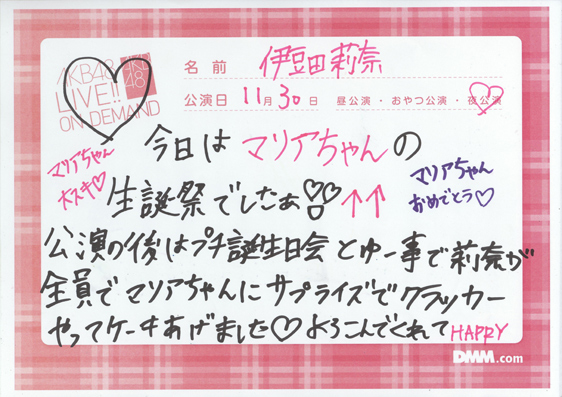 AKB48
LIVE!!
ON DEMAND
AKB48
名前 伊豆田莉奈
公演日 11月30日 昼公演・おやつ公演・夜公演
今日はマリアちゃんの
マリアちゃん
大スキ♡
生誕祭でしたぁ♡♡↑↑
マリアちゃん
おめでとう♡
公演の後はプチ誕生日会とゆー事で莉奈が
全員でマリアちゃんにサプライズでクラッカー
やってケーキあげました♡よろこんでくれてHAPPY
DMM.com